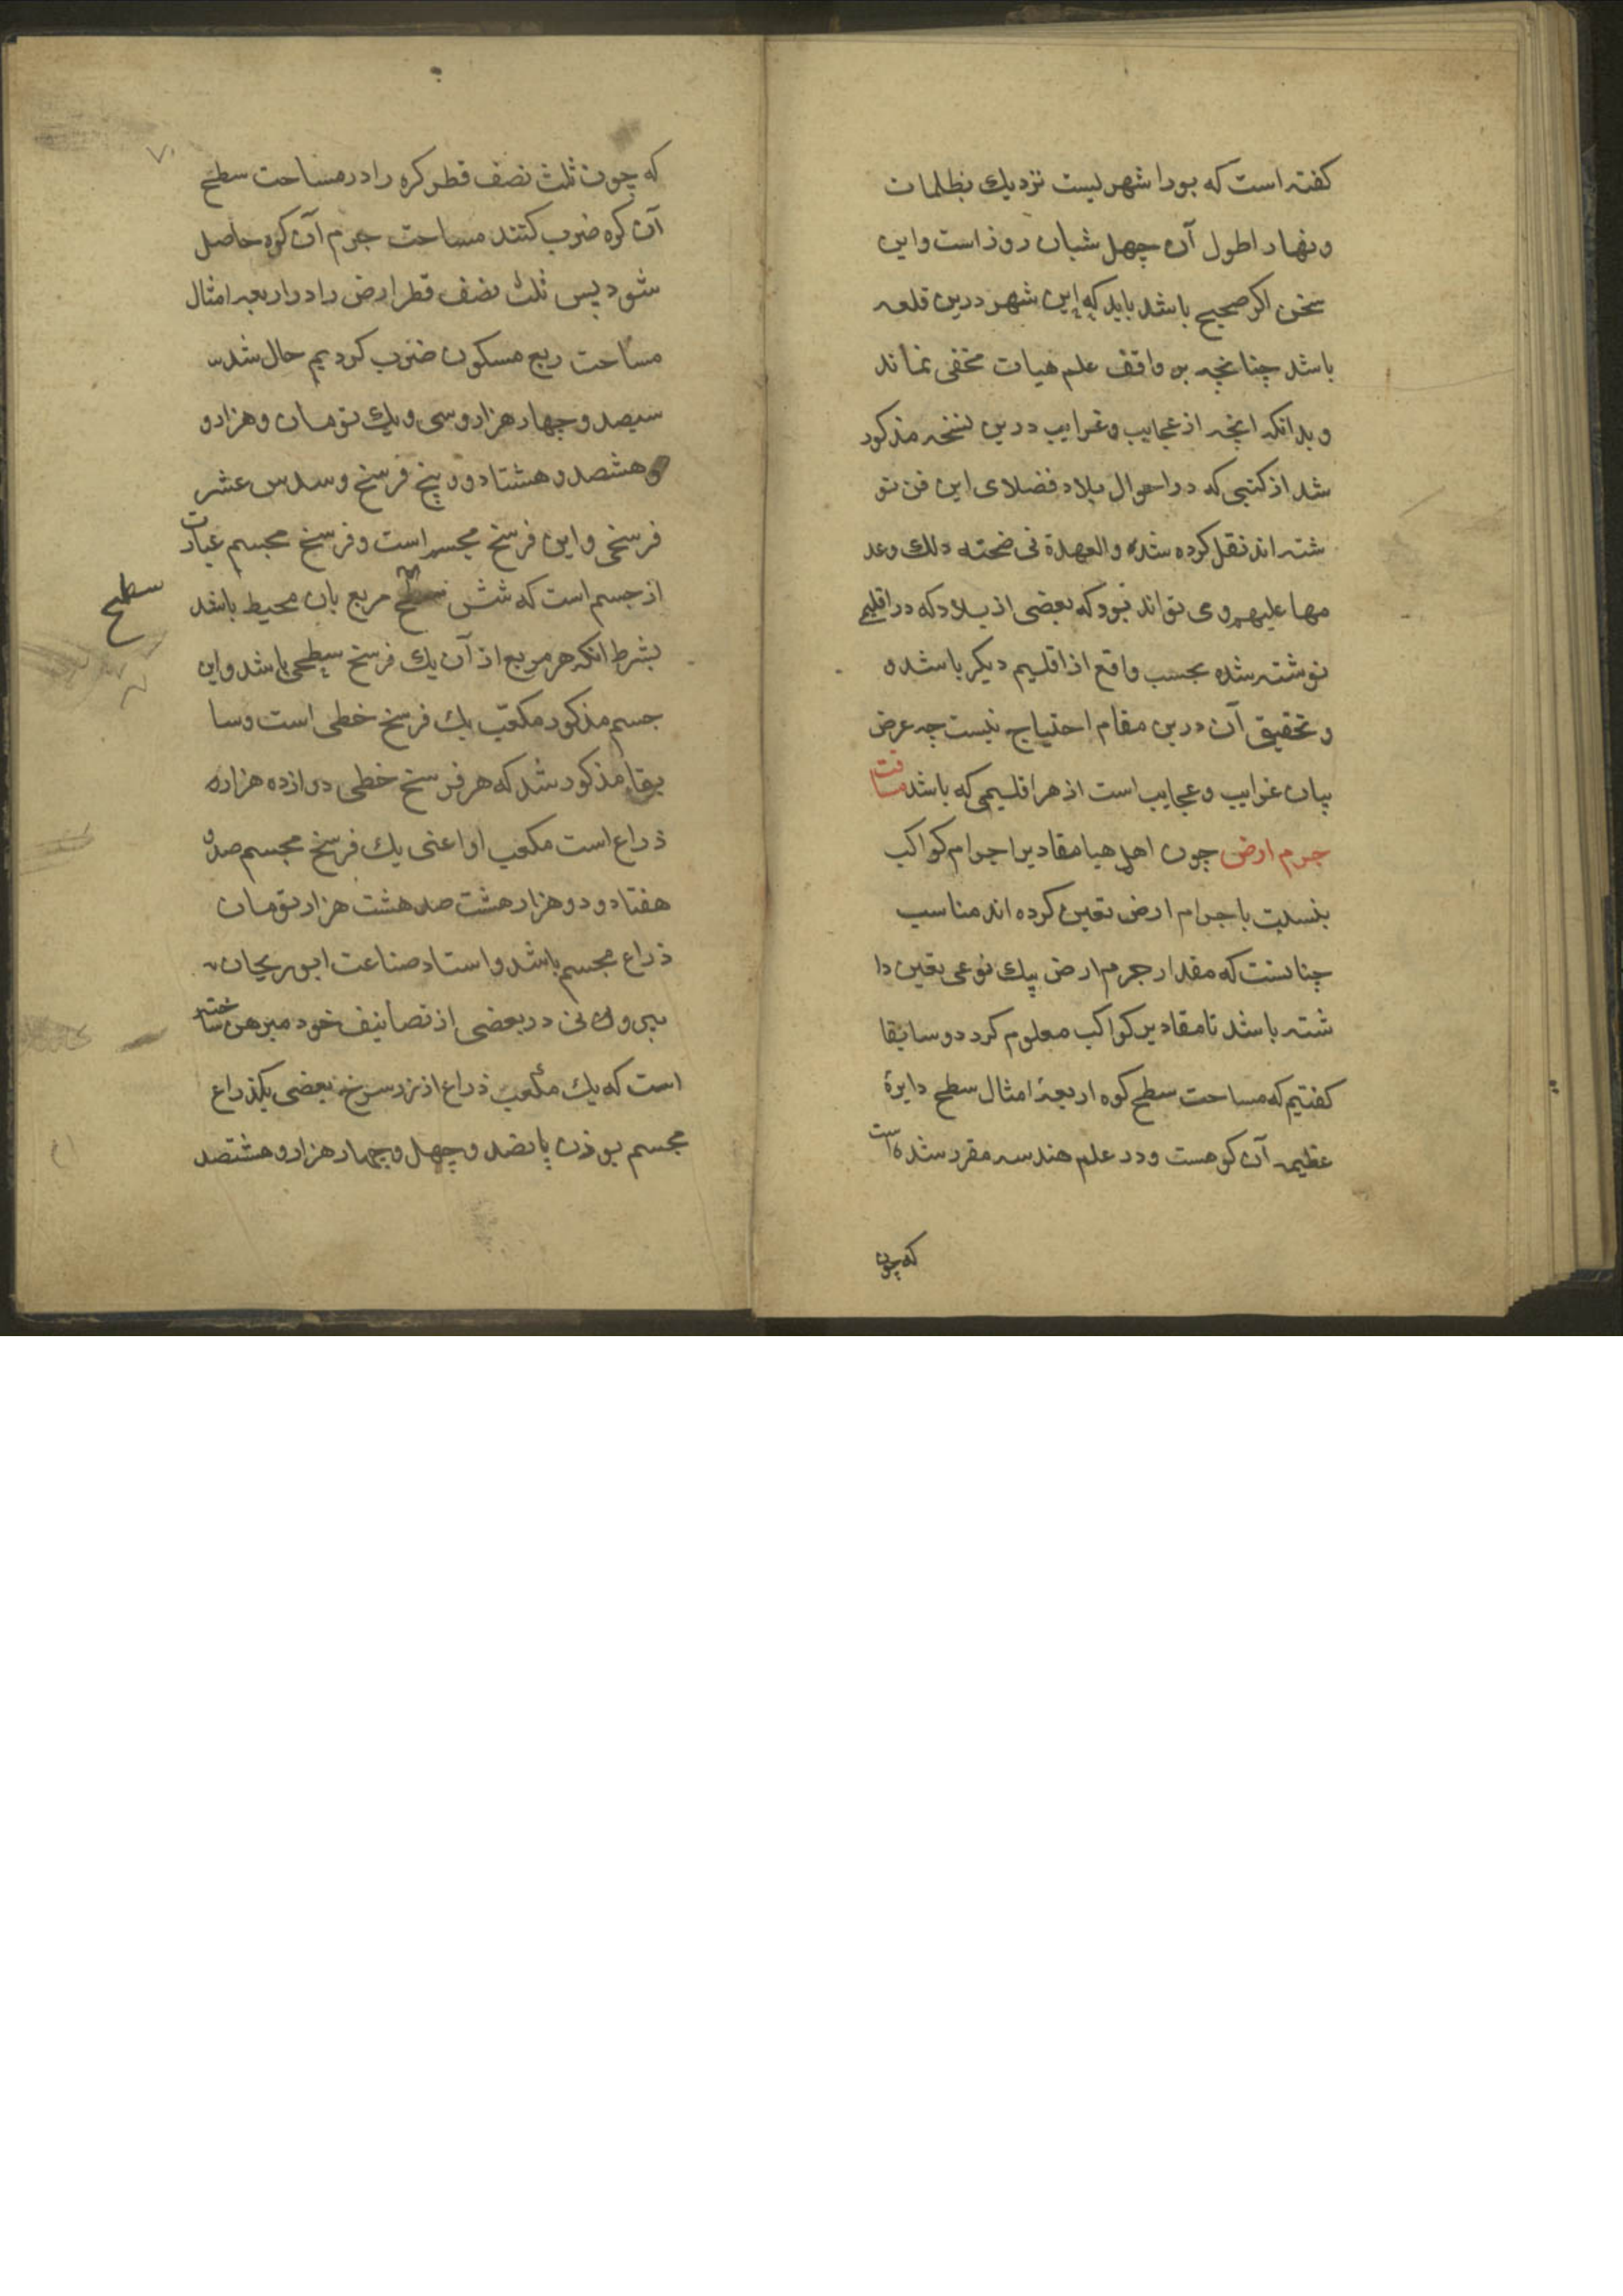 کفته است که بورا شهریست نزدیك بظلمات
ونهار اطول آن چهل شبان روز است واین
سخن اکر صحیح باشد باید که این شهر درین قلعه
باشد چنانچه بر واقف علم هیات مخفی نماند
وبدانکه انچه از عجایب وغرایب درین نسخه مذکور
شد از کتبی که در احوال بلاد فضلای این فن نو
شته اند نقل کرده شده والعهدة فی صحته ذلك وعد
مها علیهم ومی تواند بود که بعضی از بلاد که در اقلیمی
نوشته شده بحسب واقع از اقلیم دیکر باشد و
و تحقیق آن درین مقام احتیاج نیست چه عرض
بیان غرایب وعجایب است از هر اقلیمی که باشد مسافت
جرم ارض چون اهل هیا مقادیر اجرام کواکب
بنسبت با جرام ارض تعین کرده اند مناسب
چنانست که مقدار جرم ارض بیك نوعی تعین دا
شته باشد تا مقادیر کواکب معلوم کردد وسابقا
کفتیم که مساحت سطح کره اربعهٔ امثال سطح دایرهٔ
عظیمه آن کرهست ودر علم هندسه مقرر شده است
که چون
که چون ثلث نصف قطر کره را در مساحت سطح
آن کره ضرب کنند مساحت جرم آن کره حاصل
شود پس ثلث نصف قطر ارض را در اربعه امثال
مساحت ربع مسکون ضرب کردیم حال شد
سیصد وچهار هزار وسی ویك تومان وهزار و
وهشصد وهشتاد و پنج فرسخ وسدس عشر
فرسخی واین فرسخ مجسم است وفرسخ مجسم عبارت
از جسم است که شش سطح مربع بان محیط باشد
سطح
بشرط انکه هر مربع از آن یك فرسخ سطحی باشد واین
جسم مذکور مکعب یك فرسخ خطی است وسا
بقا مذکور شد که هر فرسخ خطی دوازده هزاره
ذراع است مکعب او اعنی یك فرسخ مجسم صد و
هفتاد ودو هزار هشت صد هشت هزار تومان
ذراع مجسم باشد واستاد صناعت ابو ریحان
بیرونی در بعضی از تصانیف خود مبرهن ساخته
است که یك مکعب ذراع از زر سرخ بعضی یکذراع
مجسم بوزن پانصد وچهل وچهار هزار وهشتصد